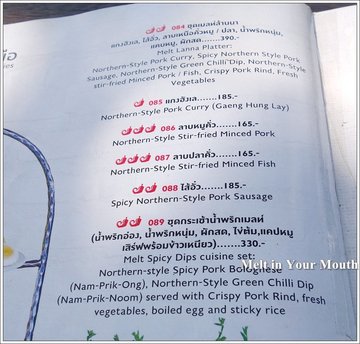 084 ชุดเมลท์ล้านนา
แกงฮังเล, ไส้อั่ว, ลาบเหนือคั่วหมู / ปลา, น้ำพริกหนุ่ม,
แคบหมู, ผักสด......390.-
Melt Lanna Platter:
Northern-Style Pork Curry, Spicy Northern Style Pork
Sausage, Northern-Style Green Chilli Dip, Northern-Style
stir-fried Minced Pork / Fish, Crispy Pork Rind, Fresh
Vegetables
085 แกงฮังเล.......185.-
Northern-Style Pork Curry (Gaeng Hung Lay)
086 ลาบหมูคั่ว......165.-
Northern-Style Stir-fried Minced Pork
087 ลาบปลาคั่ว......165.-
Northern-Style Stir-fried Minced Fish
088 ไส้อั่ว.......185.-
Spicy Northern-Style Pork Sausage
089 ชุดกระเช้าน้ำพริกเมลท์
(น้ำพริกอ่อง, น้ำพริกหนุ่ม, ผักสด, ไข่ต้ม,แคปหมู
เสิร์ฟพร้อมข้าวเหนียว).......330.-
Melt Spicy Dips cuisine set:
Northern-style Spicy Pork Bolognese
(Nam-Prik-Ong), Northern-Style Green Chilli Dip
(Nam-Prik-Noom) served with Crispy Pork Rind, fresh
vegetables, boiled egg and sticky rice
Melt in Your Mouth